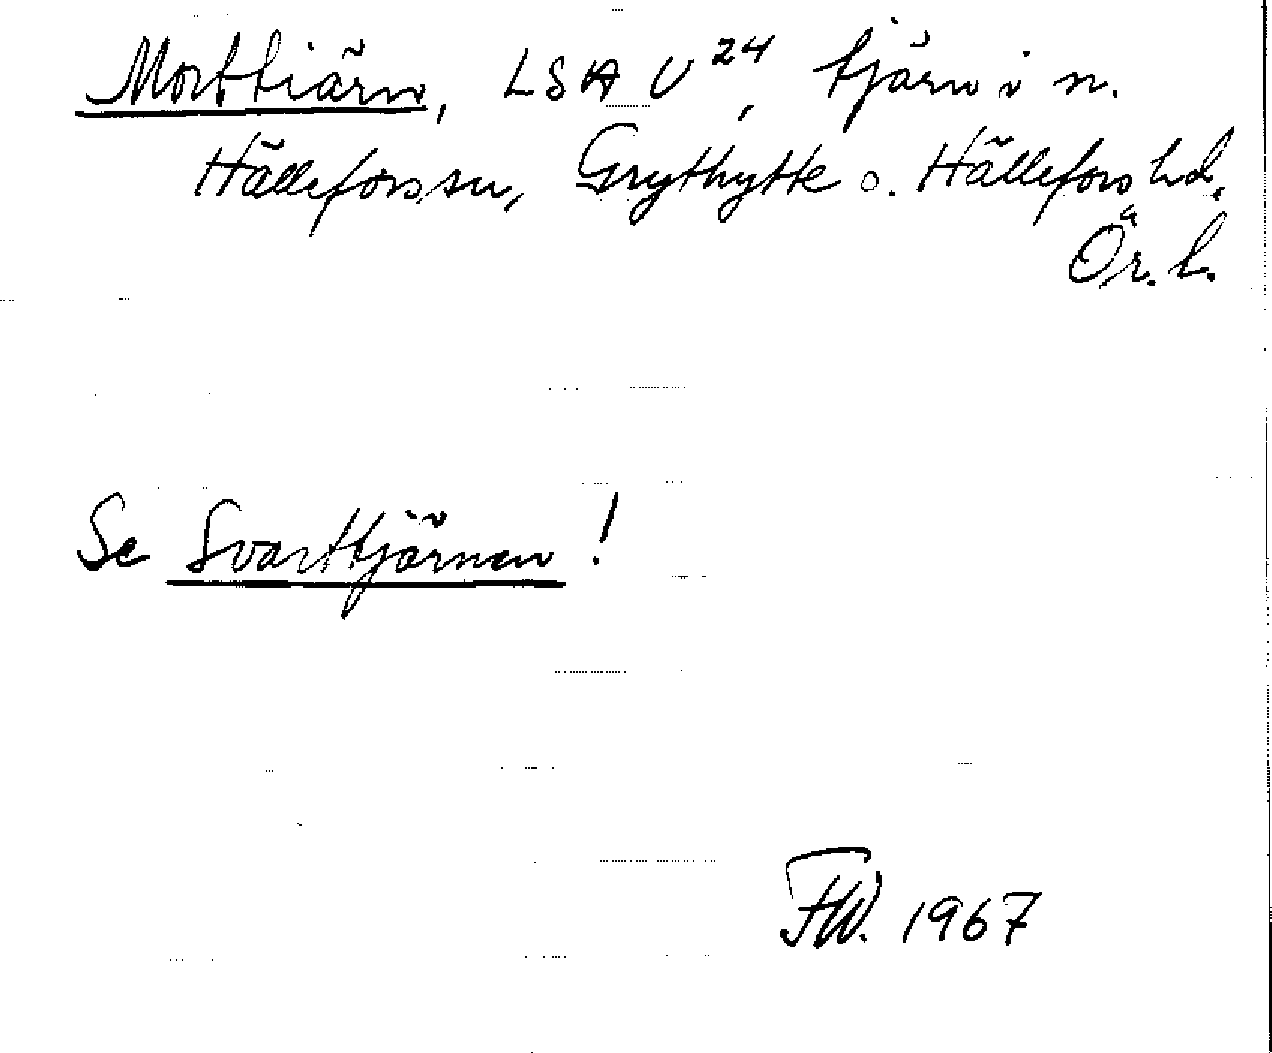 Morttiärn, LSA U 24, tjärn i n.
Hällefors sn, Grythytte o. Hällefors hd,
Ör. l.
Se Svarttjärnen!
FW. 1967